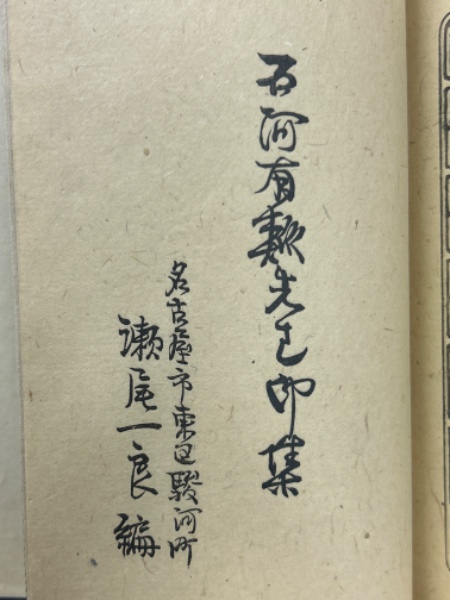 石河有鄰先生印集
名古屋市東区駿河町
瀬尾一良編